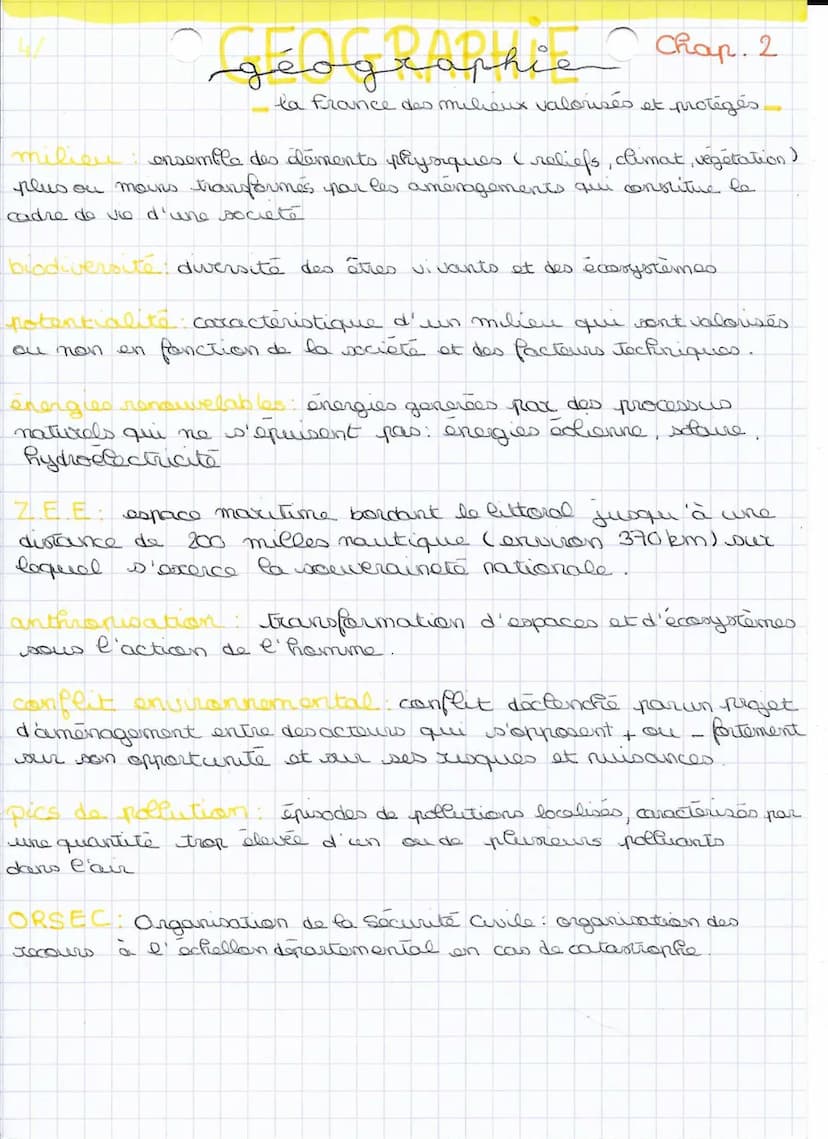 4/
GÉOGRAPHIE
géographie
Chap. 2
- la France des milieux valorisés et protégés -
milieu : ensemble des éléments physiques (reliefs, climat, végétation)
plus ou moins transformés par les aménagements qui constitue le
cadre de vie d'une société
biodiversité : diversité des êtres vivants et des écosystèmes
potentialité : caractéristique d'un milieu qui sont valorisés
ou non en fonction de la société et des facteurs techniques.
énergies renouvelables : énergies generées par des processus
naturels qui ne s'épuisent pas : énergies éolienne, solaire,
hydroélectricité
Z.E.E : espace maritime bordant le littoral jusqu'à une
distance de 200 milles nautique (environ 370 km) sur
lequel s'exerce la souveraineté nationale.
anthropisation : transformation d'espaces et d'écosystèmes
sous l'action de l'homme.
conflit environnemental : conflit déclenché par un projet
d'aménagement entre des acteurs qui s'opposent + ou - fortement
sur son opportunité et sur ses risques et nuisances.
pics de pollution : épisodes de pollutions localisés, caractérisés par
une quantité trop élevée d'un ou de plusieurs polluants
dans l'air
ORSEC : Organisation de la Sécurité Civile : organisation des
secours à l'échellon départemental en cas de catastrophe.